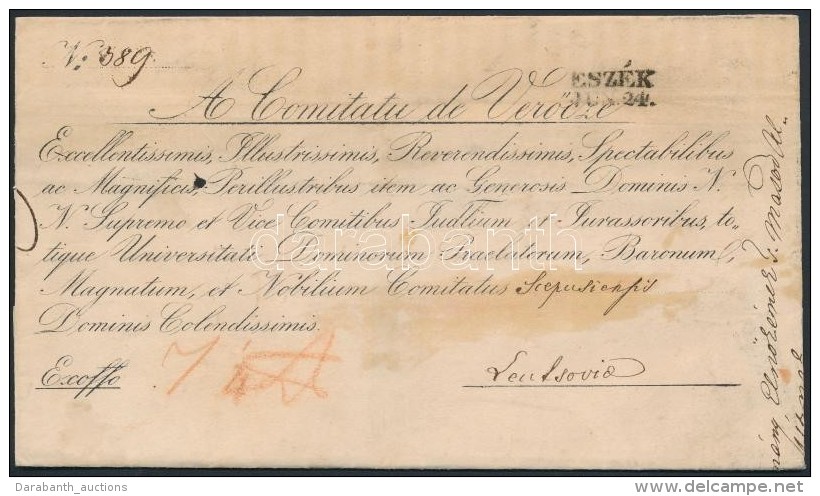 N: 389.
ESZÉK
JUN. 24.
A Comitatu de Verőcze
Excellentissimis, Illustrissimis, Reverendissimis, Spectabilibus
ac Magnificis, Perillustribus item ac Generosis Dominis N.
N. Supremo et Vice Comitibus Judlium et Jurassoribus, to„
tique Universitati Dominorum Praelatorum, Baronum,
Magnatum, et Nobilium Comitatus Scepusiensis
Dominis Colendissimis.
Exoffo
Leutsovia
darabanth
Darabanth_auctions
www.delcampe.net